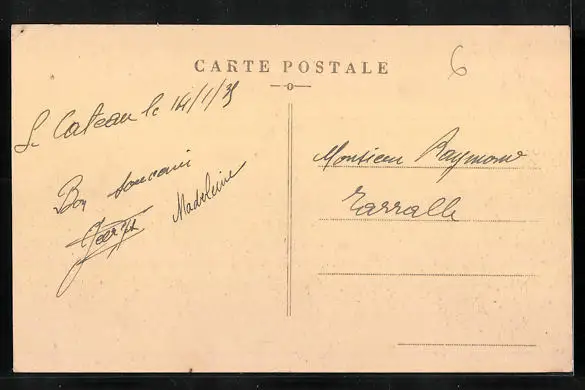 CARTE POSTALE
6
Le Cateau le 14/1/35
Bon souvenir
Madeleine
Monsieur Raymond